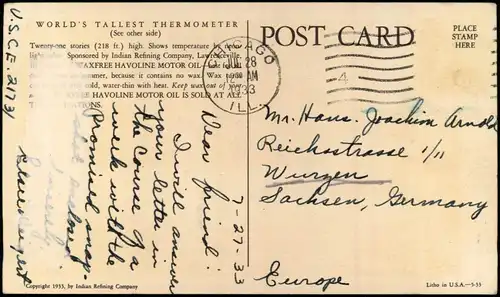 U.S.C.E. 2173/
WORLD'S TALLEST THERMOMETER
(See other side)
Twenty-one stories (218 ft.) high. Shows temperature by neon
light tube. Sponsored by Indian Refining Company, Lawrenceville,
WAXFREE HAVOLINE MOTOR OIL
summer, because it contains no wax. Wax
cold, water-thin with heat. Keep wax out of
HAVOLINE MOTOR OIL IS SOLD AT ALL
STATIONS.
7-27-33
Dear friend:
I will answer
your letter in
the course of a
week with the
promised snap-
shot enclosed.
Copyright 1933, by Indian Refining Company
CHICAGO
JUL 28
12 AM
1933
ILL.
4
POST CARD
PLACE
STAMP
HERE
Mr. Hans-Joachim Arnold
Reichsstrasse 1/11
Wurzen
Sachsen, Germany
Europe
Litho in U.S.A.—5-33